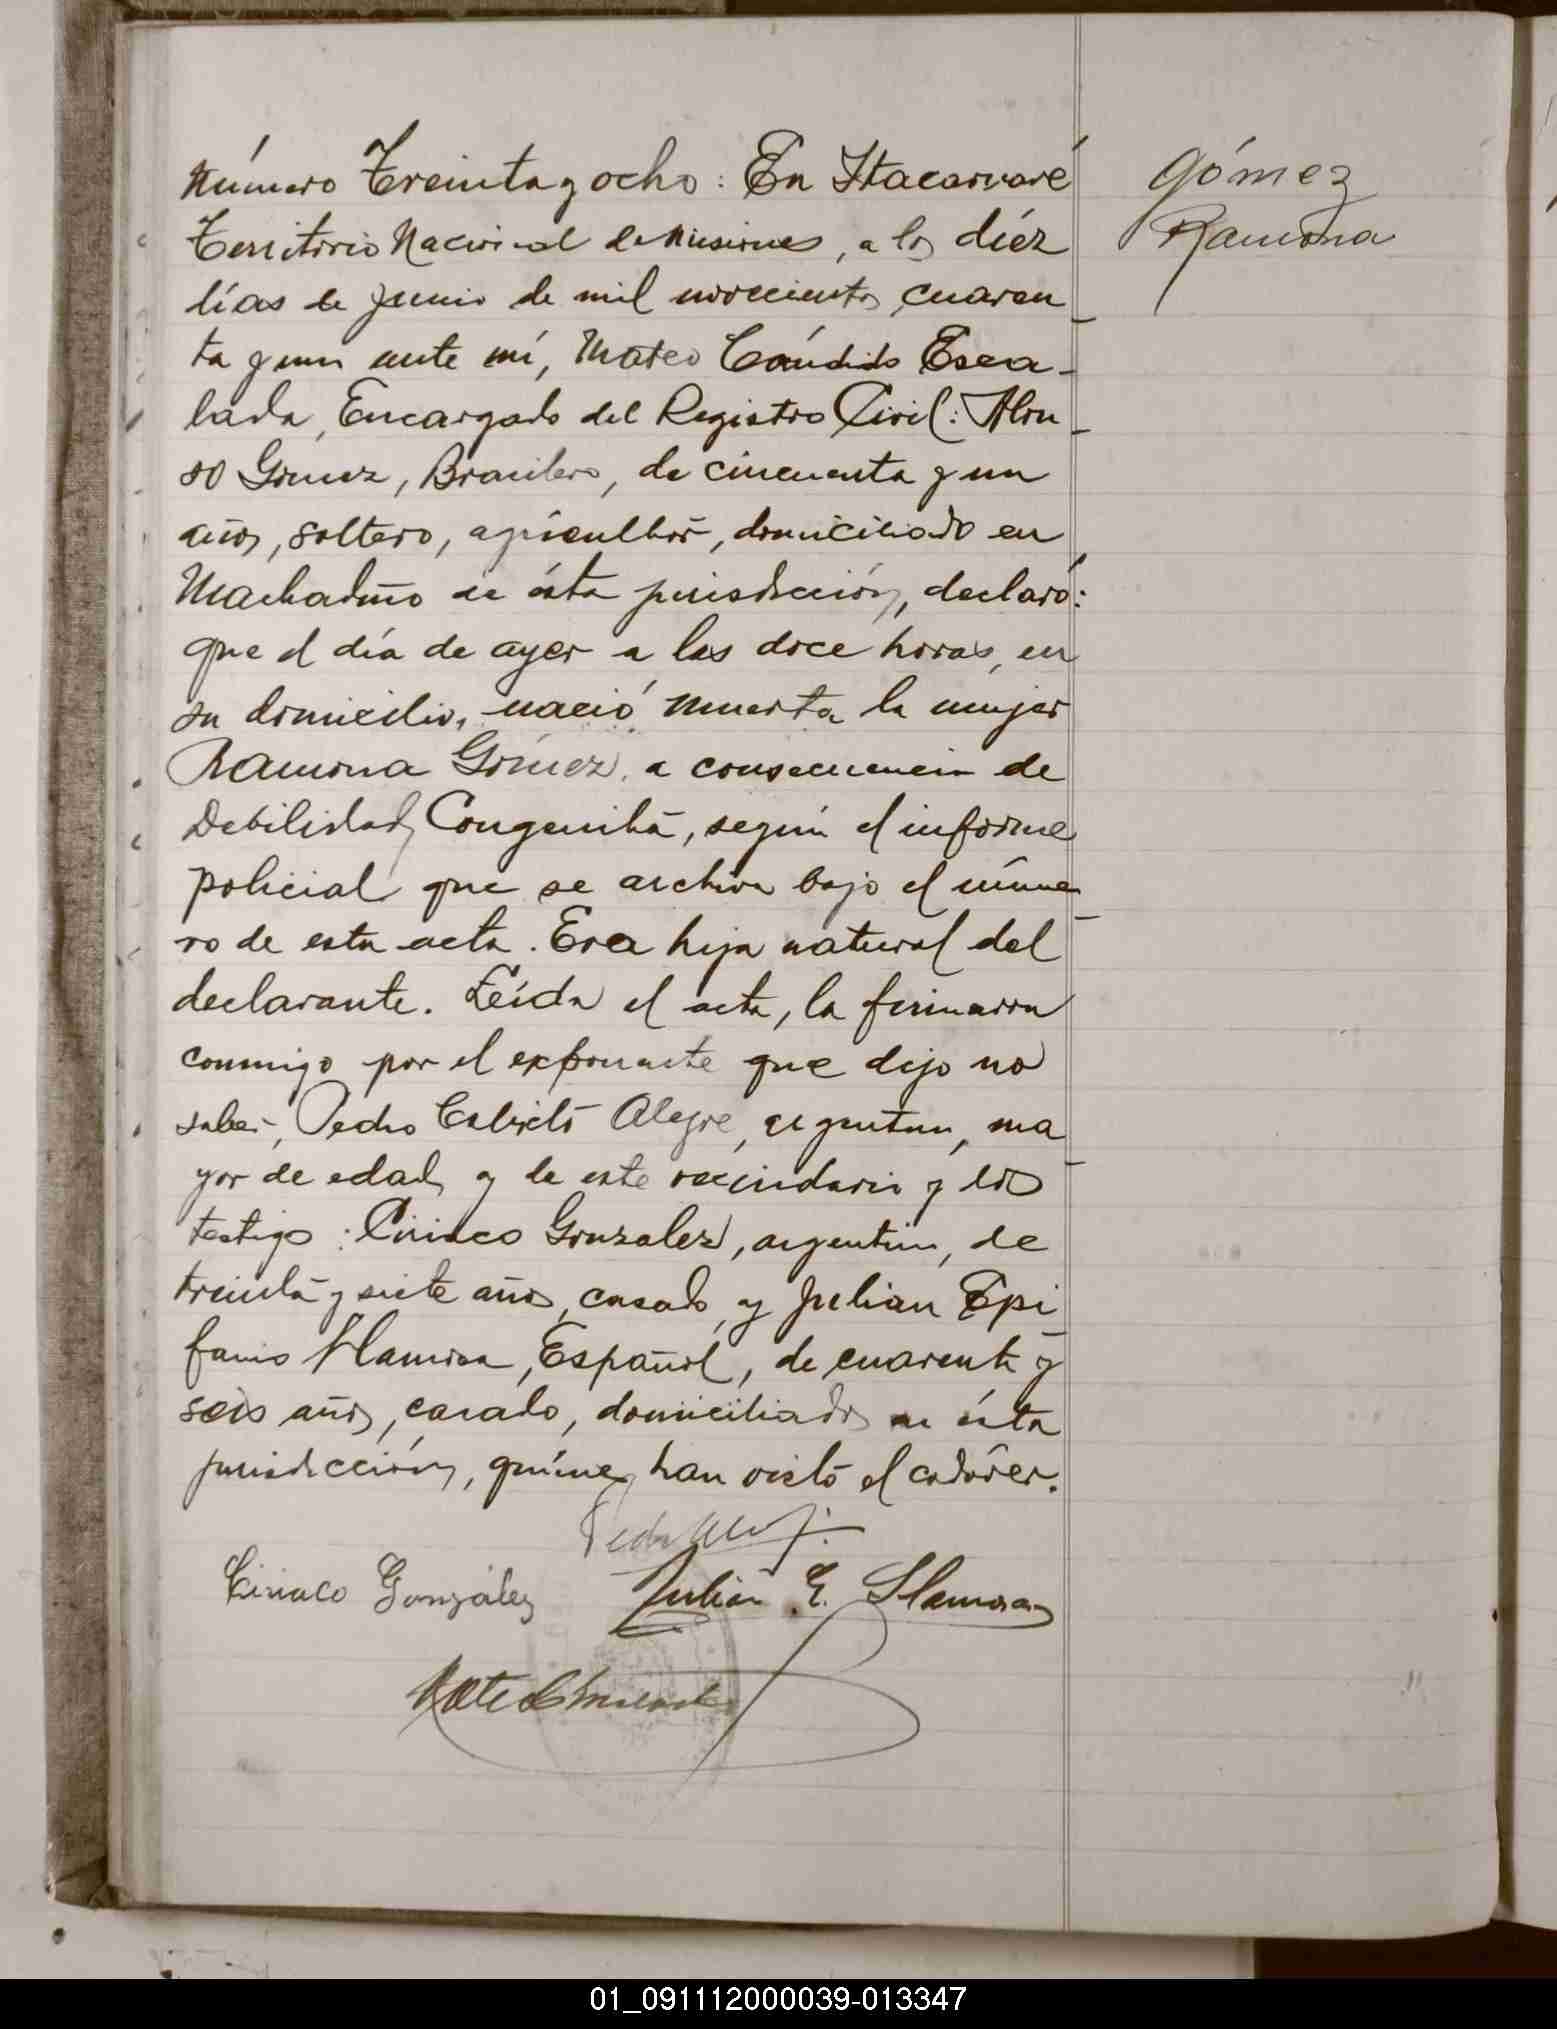 Número Treinta y ocho: En Itacaruaré
Gómez
Ramona
Territorio Nacional de Misiones, a los diéz
días de Junio de mil novecientos cuaren
ta y un ante mí, Mateo Cándido Esca-
lada, Encargado del Registro Civil: Alon
so Gómez, Brasilero, de cincuenta y un
años, soltero, agricultor, domiciliado en
Machadiño de ésta jurisdicción, declaró:
que el día de ayer a las doce horas, en
su domicilio, nació muerta la mujer
Ramona Gómez, a consecuencia de
Debilidad Congenita, según el informe
policial que se archiva bajo el núme
ro de esta acta. Era hija natural del
declarante. Leída el acta, la firmaron
conmigo por el exponente que dijo no
saber, Pedro Calixto Alegre, argentino, ma
yor de edad y de este vecindario y los
testigos: Ciriaco Gonzalez, argentino, de
treinta y siete años, casado, y Julian Epi
fanio Llamosa, Español, de cuarenta y
seis años, casado, domiciliados en ésta
jurisdicción, quiénes han visto el cadáver.
Ciriaco González
Julián E. Llamosas
01_091112000039-013347